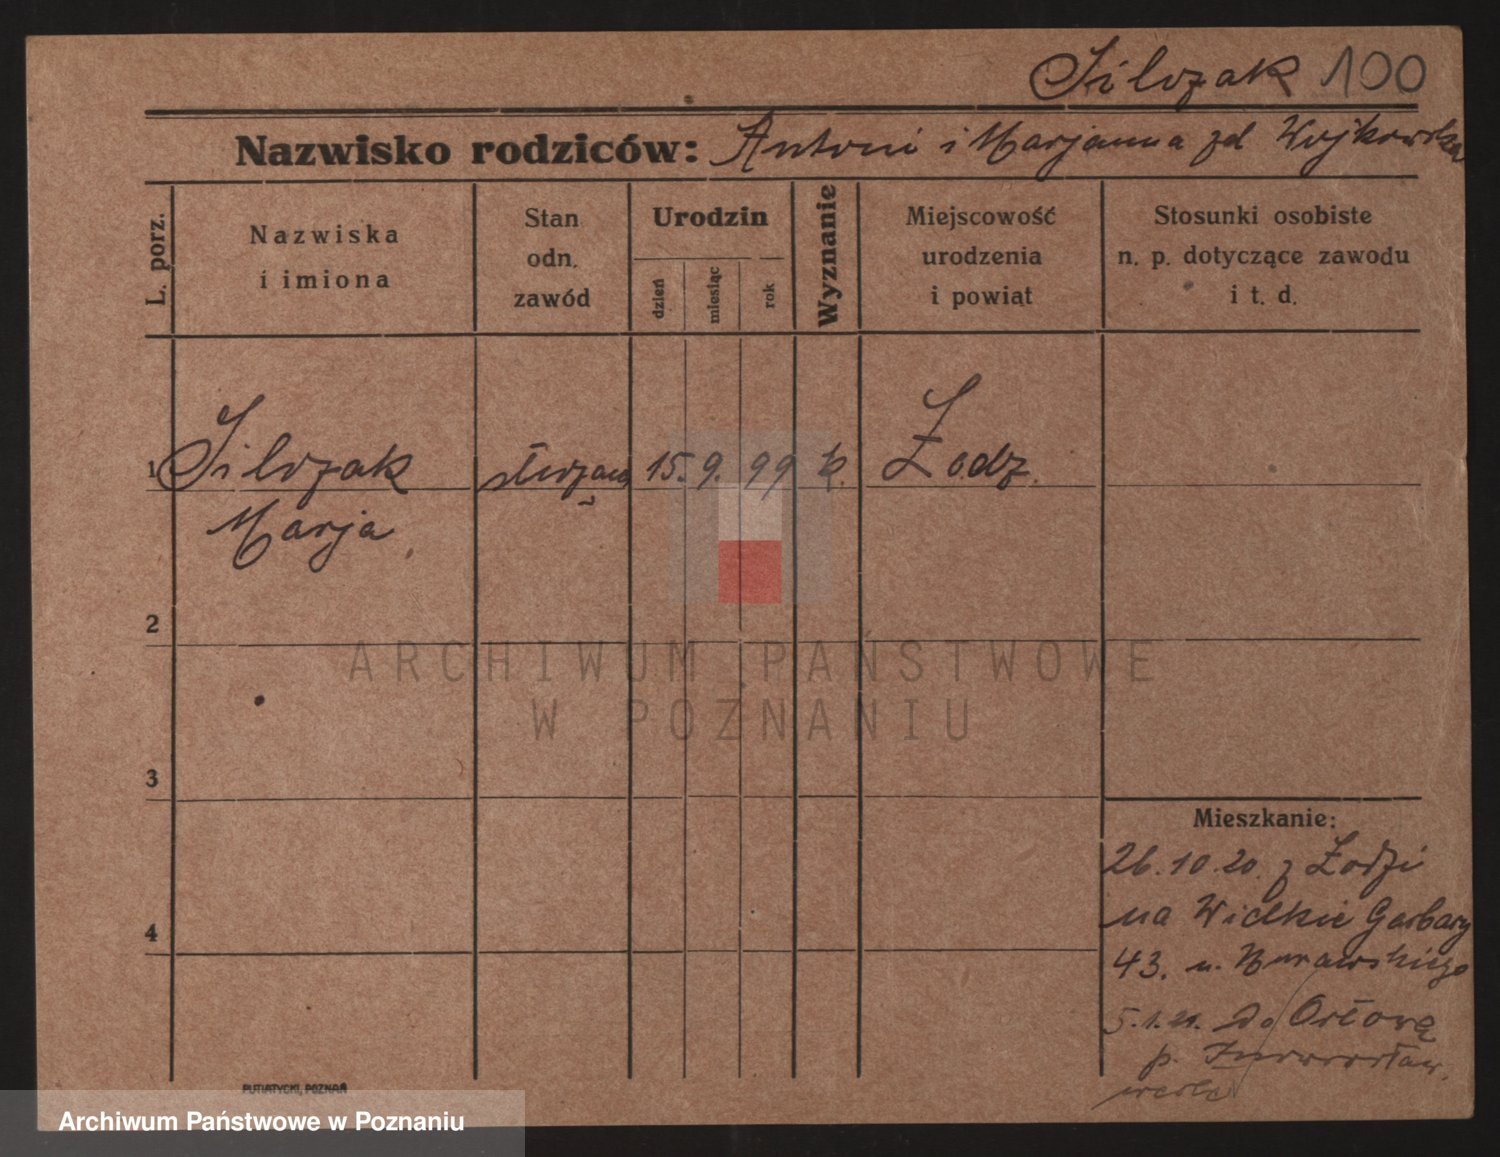 Filczak 100
Nazwisko rodziców: Antoni i Marjanna zd Wojkowska
L. porz.
Nazwiska
i imiona
Stan
odn.
zawód
Urodzin
dzień
miesiąc
rok
Wyznanie
Miejscowość
urodzenia
i powiąt
Stosunki osobiste
n. p. dotyczące zawodu
i t. d.
1 Filczak 15. 9. 99 k. Łodz.
Marja
2
3
4
Mieszkanie:
26.10.20. z Łodzi
na Wielkie Garbary
43. u.
5.1.21. do Orłowa
p. Inowrocław.
PUTIATYCKI, POZNAŃ
ARCHIWUM PAŃSTWOWE
W POZNANIU
Archiwum Państwowe w Poznaniu